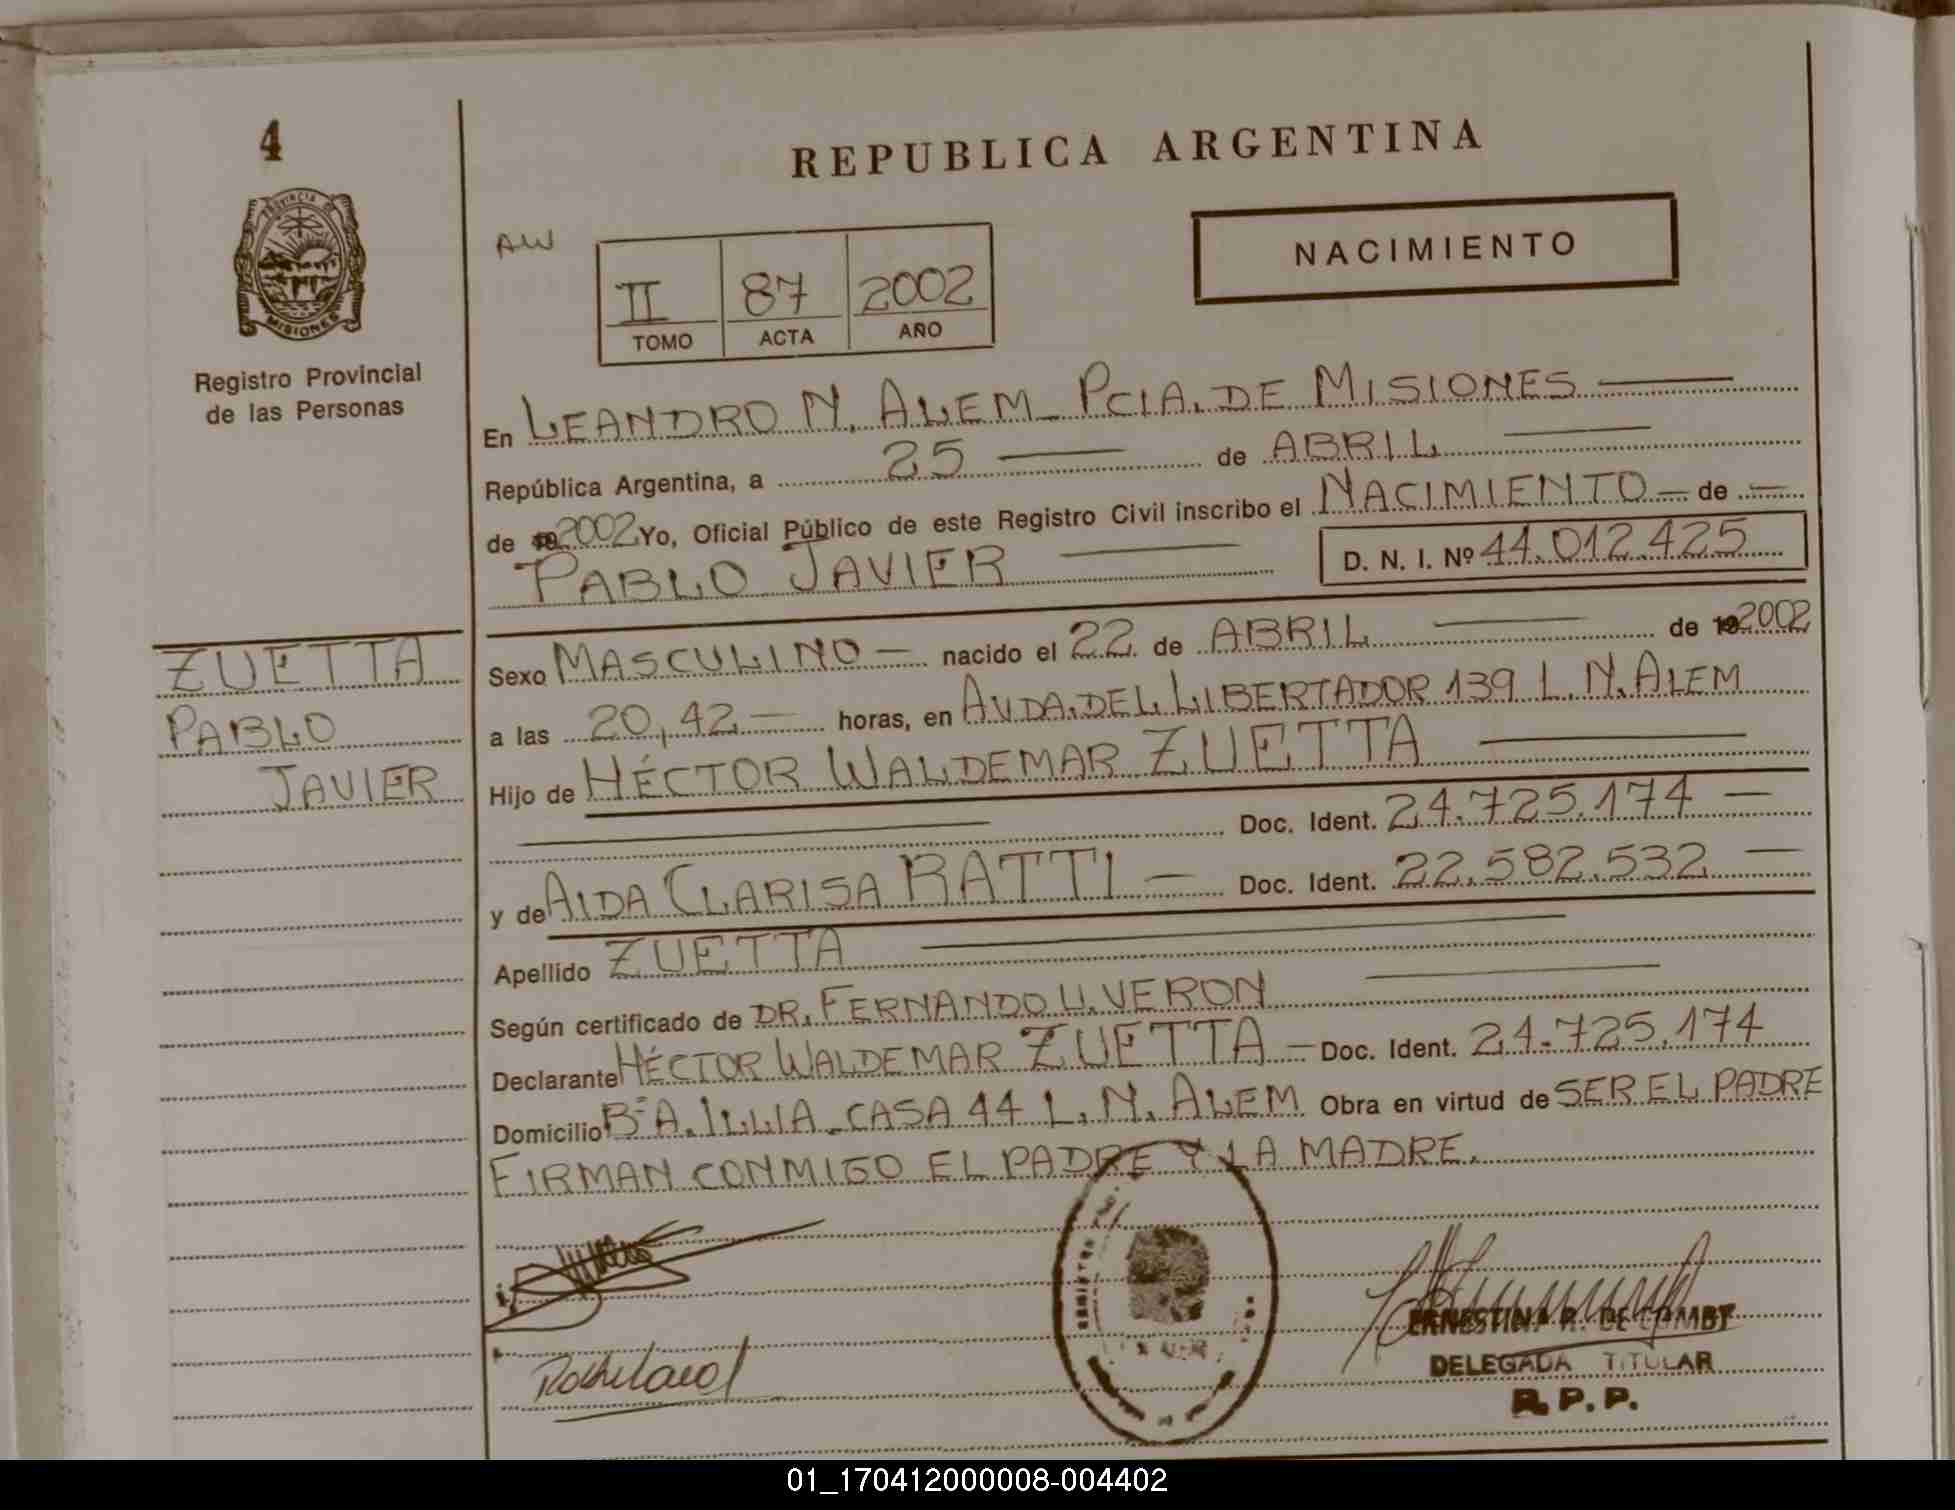 4
REPUBLICA ARGENTINA
PROVINCIA DE
MISIONES
Registro Provincial
de las Personas
AW
II 87 2002
TOMO ACTA AÑO
NACIMIENTO
En LEANDRO N. ALEM - PCIA. DE MISIONES
República Argentina, a 25 de ABRIL
de 2002 Yo, Oficial Público de este Registro Civil inscribo el NACIMIENTO — de —
PABLO JAVIER
D. N. I. Nº 44.012.425
ZUETTA
PABLO
JAVIER
Sexo MASCULINO — nacido el 22 de ABRIL de 192002
a las 20,42 — horas, en AVDA. DEL LIBERTADOR 139 L. N. ALEM
Hijo de HÉCTOR WALDEMAR ZUETTA
Doc. Ident. 24.725.174 —
y de AIDA CLARISA RATTI — Doc. Ident. 22.582.532 —
Apellido ZUETTA
Según certificado de DR. FERNANDO U. VERON
Declarante HÉCTOR WALDEMAR ZUETTA — Doc. Ident. 24.725.174
Domicilio Bº A. ILLIA - CASA 44 L. N. ALEM Obra en virtud de SER EL PADRE
FIRMAN CONMIGO EL PADRE Y LA MADRE.
ERNESTINA R. DE COMBY
DELEGADA TITULAR
R. P. P.
01_170412000008-004402